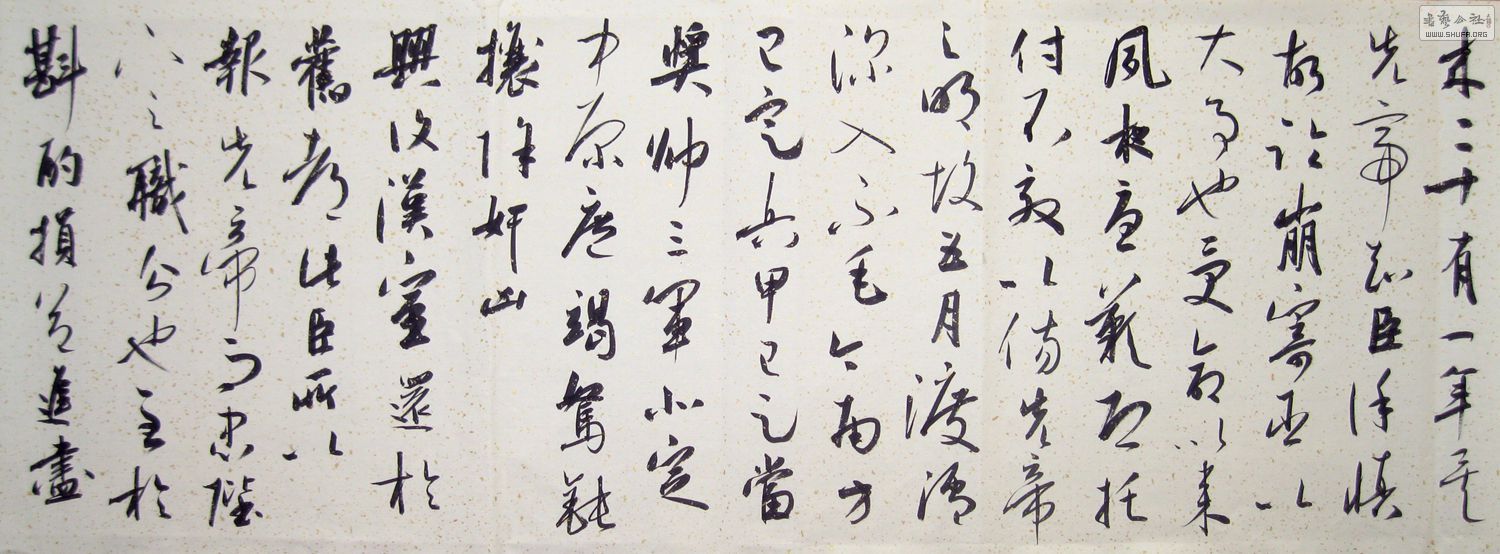 来二十有一年矣
先帝知臣谨慎
故臨崩寄臣以
大事也受命以来
夙夜憂歎恐托
付不效以傷先帝
之明故五月渡瀘
深入不毛今南方
已定兵甲已足當
獎帅三軍北定
中原庶竭駑鈍
攘除奸凶
興復漢室還於
舊都此臣所以
報先帝而忠陛
下之職分也至於
斟酌損益進盡
書藝公社
WWW.SHUFA.ORG